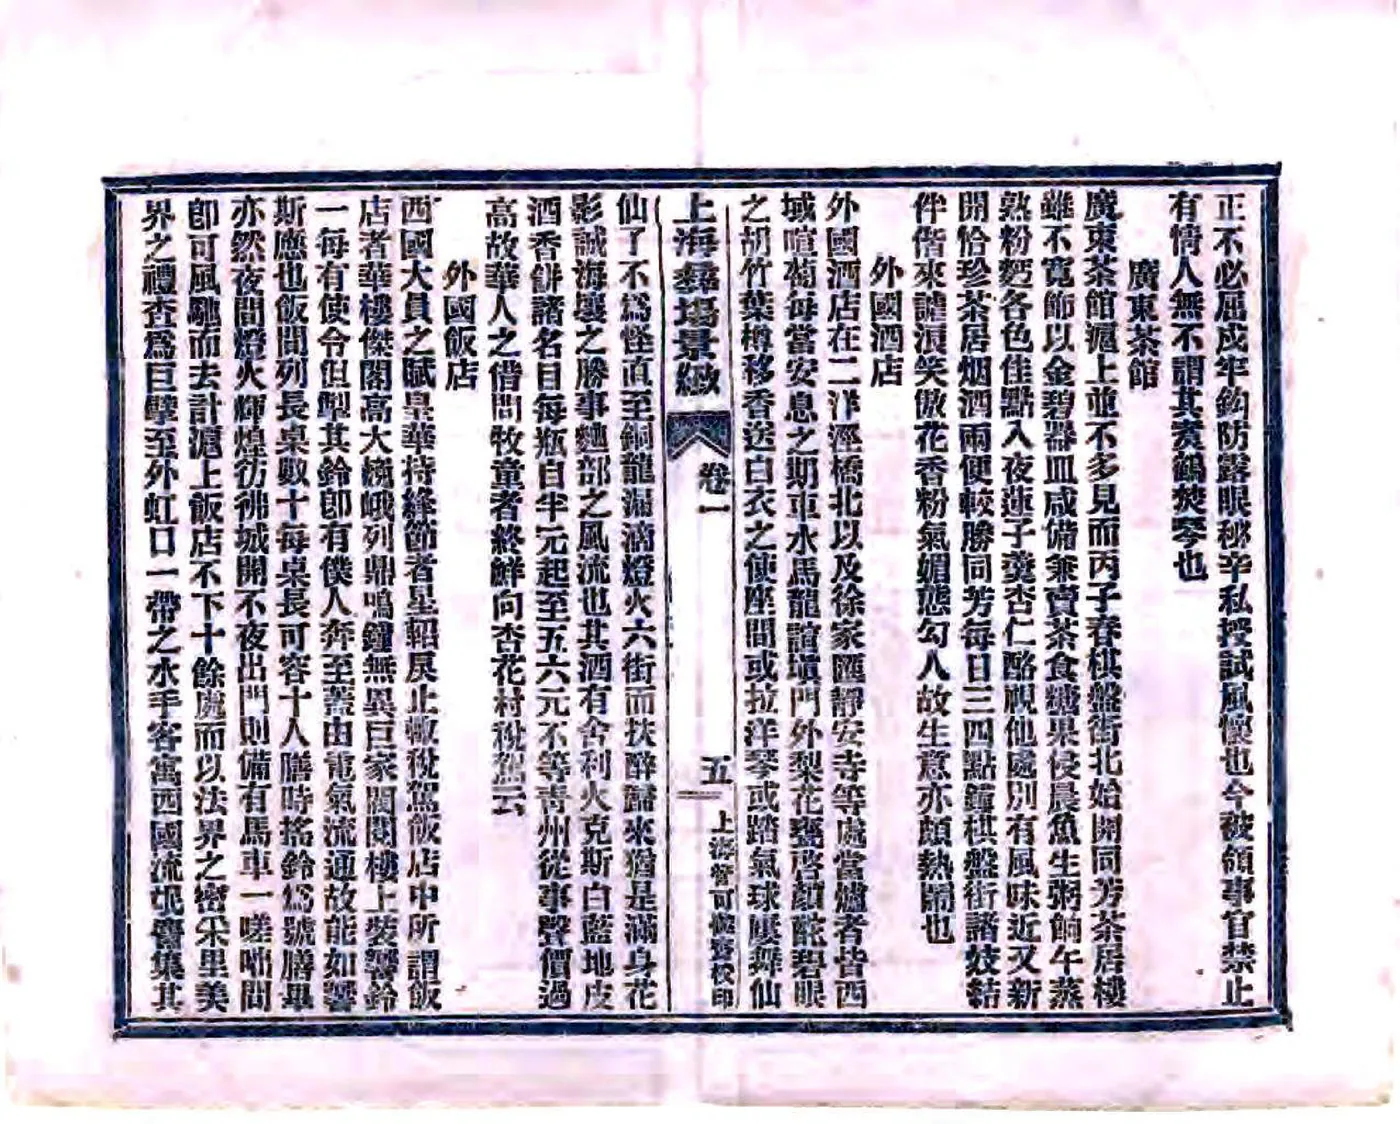 正不必屈戍牢鈎防露眼秘辛私授試風懷也今被領事官禁止
有情人無不謂其煑鶴焚琴也
廣東茶館
廣東茶館滬上並不多見而丙子春棋盤街北始開同芳茶居樓
雖不寬飾以金碧器皿咸備兼賣茶食糖果侵晨魚生粥餉午蒸
熟粉麪各色佳點入夜蓮子羹杏仁酪視他處別有風味近又新
開恰珍茶居烟酒兩便較勝同芳每日三四點鐘棋盤街諸妓結
伴偕來謔浪笑傲花香粉氣媚態勾人故生意亦頗熱鬧也
外國酒店
外國酒店在二洋涇橋北以及徐家匯靜安寺等處當爐者皆西
城喧蔔每當安息之期車水馬龍諠塡門外梨花甕啓顏酡碧眼
之胡竹葉樽移香送白衣之使座間或拉洋琴或踏氣球屢舞仙
上海彝場景緻
卷一
五
上海管可壽齋校印
仙了不爲怪直至銅龍漏滴燈火六街而扶醉歸來猶是滿身花
影誠海壖之勝事麯部之風流也其酒有舍利火克斯白藍地皮
酒香餅諸名目每瓶自半元起至五六元不等靑州從事聲價過
高故華人之借問牧童者終鮮向杏花村稅駕云
外國飯店
西國大員之賦皇華持絳節者星軺戾止輒稅駕飯店中所謂飯
店者華樓傑閣高大巍峨列鼎鳴鐘無異巨家閥閱樓上裝響鈴
一每有使令但掣其鈴卽有僕人奔至蓋由電氣流通故能如響
斯應也飯間列長桌數十每桌長可容十人膳時搖鈴爲號膳畢
亦然夜間燈火輝煌彷彿城開不夜出門則備有馬車一嗟咄間
卽可風馳而去計滬上飯店不下十餘處而以法界之密采里美
界之禮查爲巨擘至外虹口一帶之水手客寓西國流氓麕集其